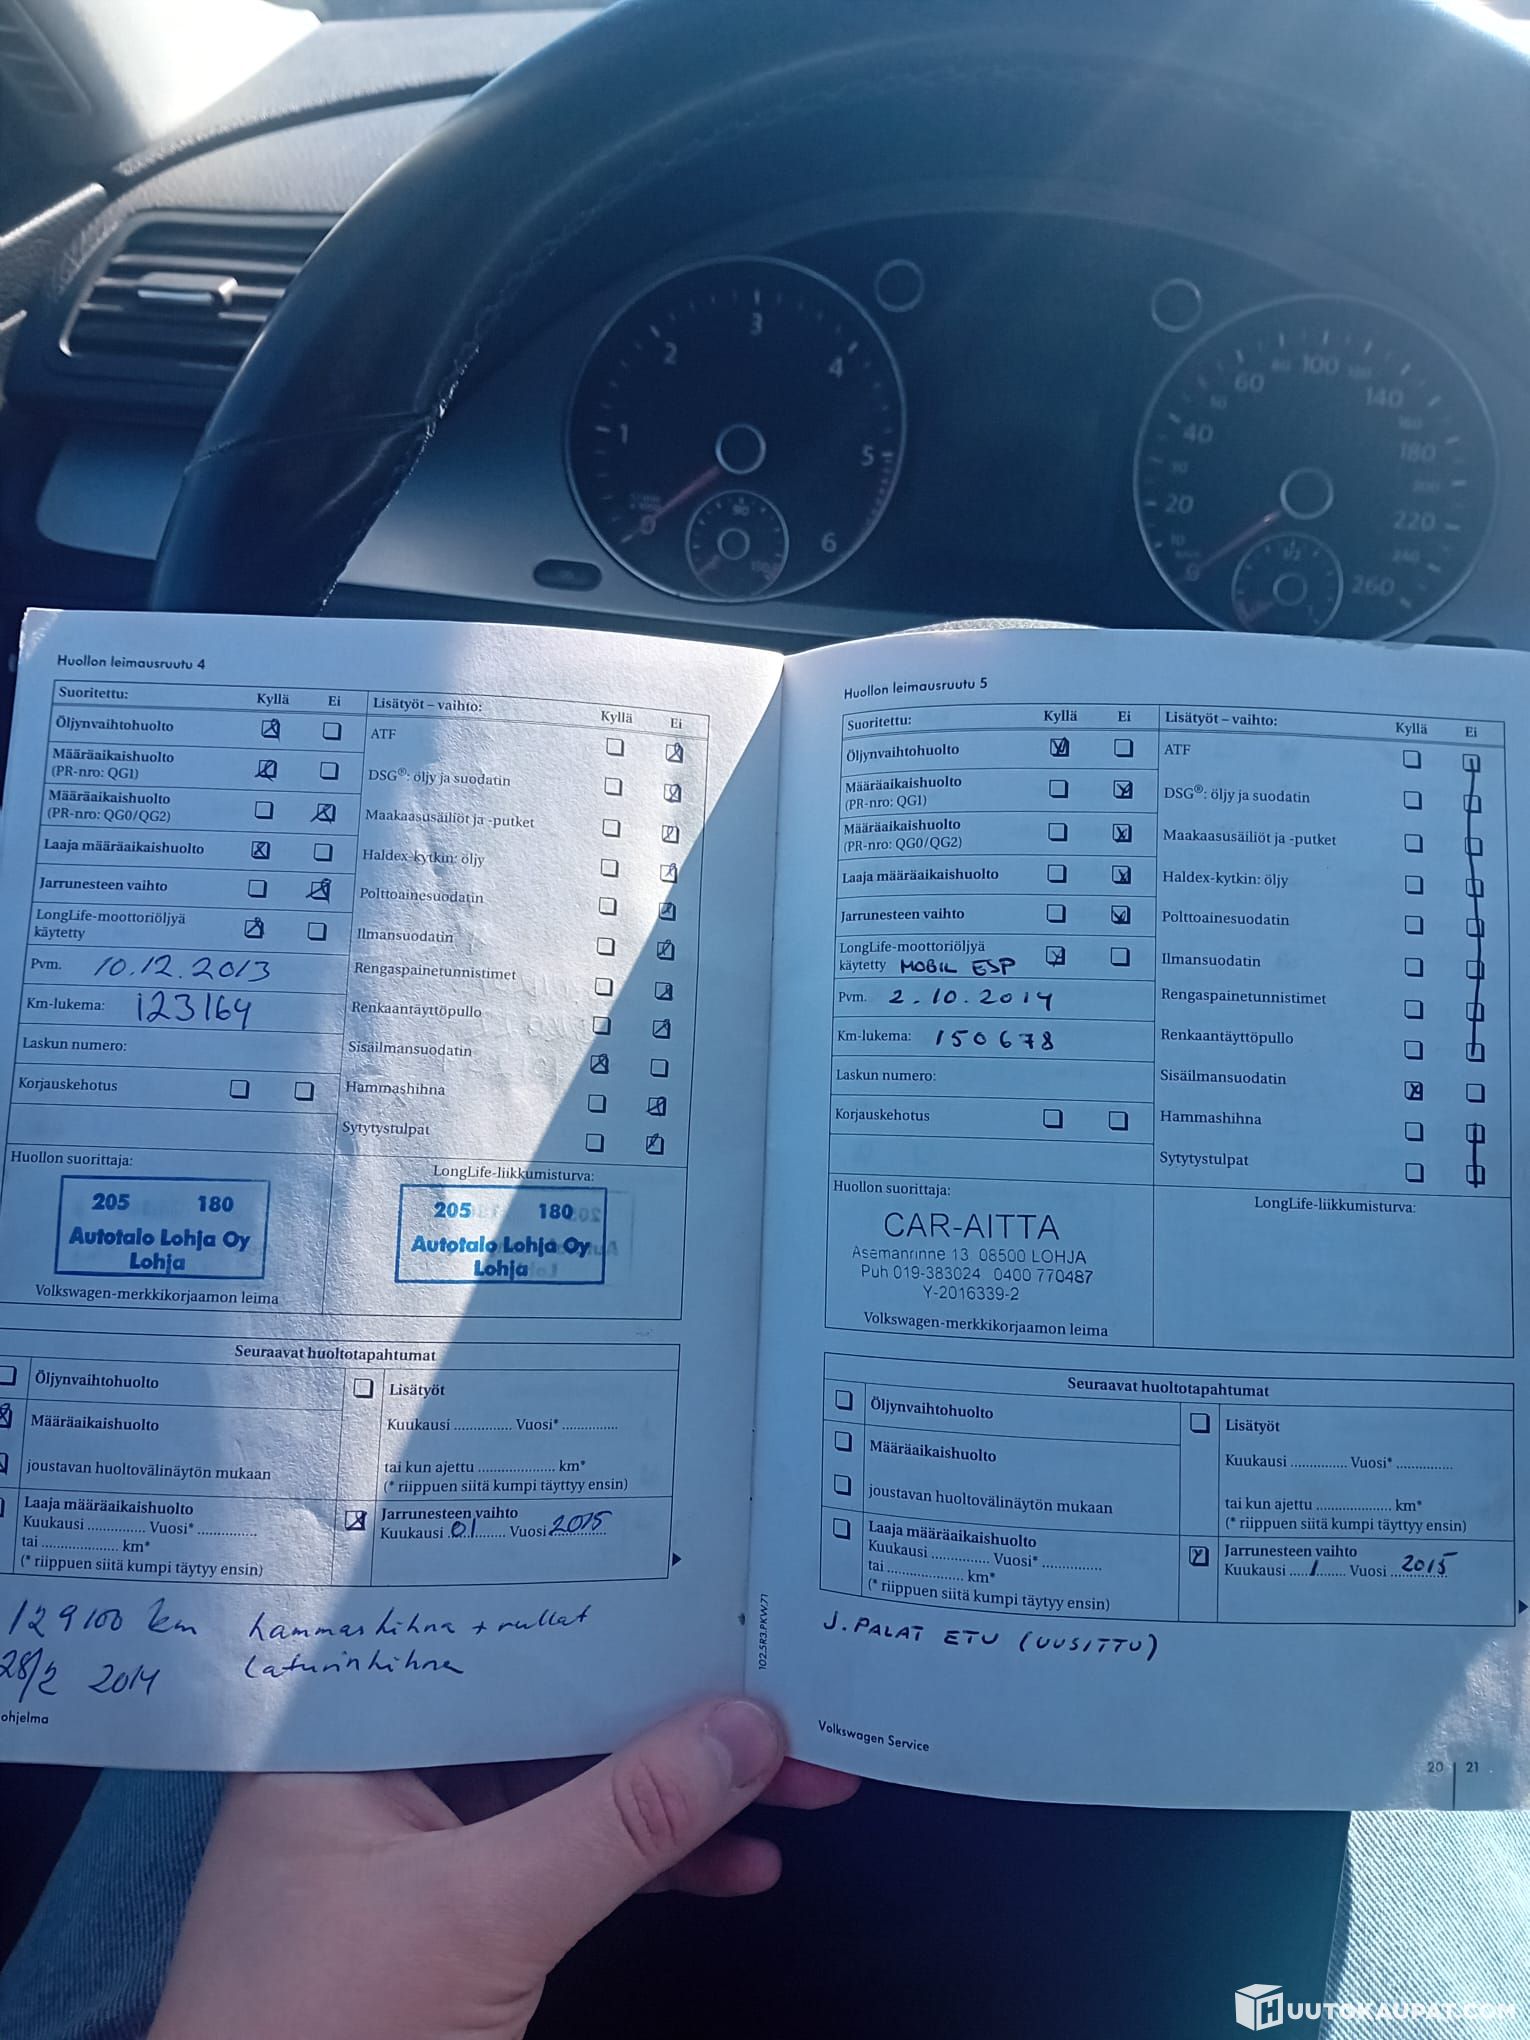 1
2
3
4
5
6
90
20
40
60
80
100
120
140
160
180
200
220
240
260
1/2
Huollon leimausruutu 4
Suoritettu: Kyllä Ei
Öljynvaihtohuolto
Määräaikaishuolto
(PR-nro: QG1)
Määräaikaishuolto
(PR-nro: QG0/QG2)
Laaja määräaikaishuolto
Jarrunesteen vaihto
LongLife-moottoriöljyä
käytetty
Pvm. 10.12.2013
Km-lukema: 123164
Laskun numero:
Korjauskehotus
Lisätyöt – vaihto: Kyllä Ei
ATF
DSG®: öljy ja suodatin
Maakaasusäiliöt ja -putket
Haldex-kytkin: öljy
Polttoainesuodatin
Ilmansuodatin
Rengaspainetunnistimet
Renkaantäyttöpullo
Sisäilmansuodatin
Hammashihna
Sytytystulpat
Huollon suorittaja:
205 180
Autotalo Lohja Oy
Lohja
Volkswagen-merkkikorjaamon leima
LongLife-liikkumisturva:
205 180
Autotalo Lohja Oy
Lohja
Seuraavat huoltotapahtumat
Öljynvaihtohuolto
Määräaikaishuolto
joustavan huoltovälinäytön mukaan
Laaja määräaikaishuolto
Kuukausi ............... Vuosi* ...............
tai .................... km*
(* riippuen siitä kumpi täytyy ensin)
Lisätyöt
Kuukausi ............... Vuosi* ..............
tai kun ajettu .................... km*
(* riippuen siitä kumpi täyttyy ensin)
Jarrunesteen vaihto
Kuukausi 01 Vuosi 2015
129100 km hammashihna + rullat
28/2 2014 laturinhihna
ohjelma
102.5R3.PKW.71
Huollon leimausruutu 5
Suoritettu: Kyllä Ei
Öljynvaihtohuolto
Määräaikaishuolto
(PR-nro: QG1)
Määräaikaishuolto
(PR-nro: QG0/QG2)
Laaja määräaikaishuolto
Jarrunesteen vaihto
LongLife-moottoriöljyä
käytetty MOBIL ESP
Pvm. 2.10.2014
Km-lukema: 150678
Laskun numero:
Korjauskehotus
Lisätyöt – vaihto: Kyllä Ei
ATF
DSG®: öljy ja suodatin
Maakaasusäiliöt ja -putket
Haldex-kytkin: öljy
Polttoainesuodatin
Ilmansuodatin
Rengaspainetunnistimet
Renkaantäyttöpullo
Sisäilmansuodatin
Hammashihna
Sytytystulpat
Huollon suorittaja:
CAR-AITTA
Asemanrinne 13 08500 LOHJA
Puh 019-383024 0400 770487
Y-2016339-2
Volkswagen-merkkikorjaamon leima
LongLife-liikkumisturva:
Seuraavat huoltotapahtumat
Öljynvaihtohuolto
Määräaikaishuolto
joustavan huoltovälinäytön mukaan
Laaja määräaikaishuolto
Kuukausi ............... Vuosi* ...............
tai .................... km*
(* riippuen siitä kumpi täytyy ensin)
Lisätyöt
Kuukausi .............. Vuosi* ..............
tai kun ajettu .................... km*
(* riippuen siitä kumpi täyttyy ensin)
Jarrunesteen vaihto
Kuukausi .....1....... Vuosi 2015
J. PALAT ETU (UUSITTU)
Volkswagen Service
20 | 21
HUUTOKAUPAT.COM